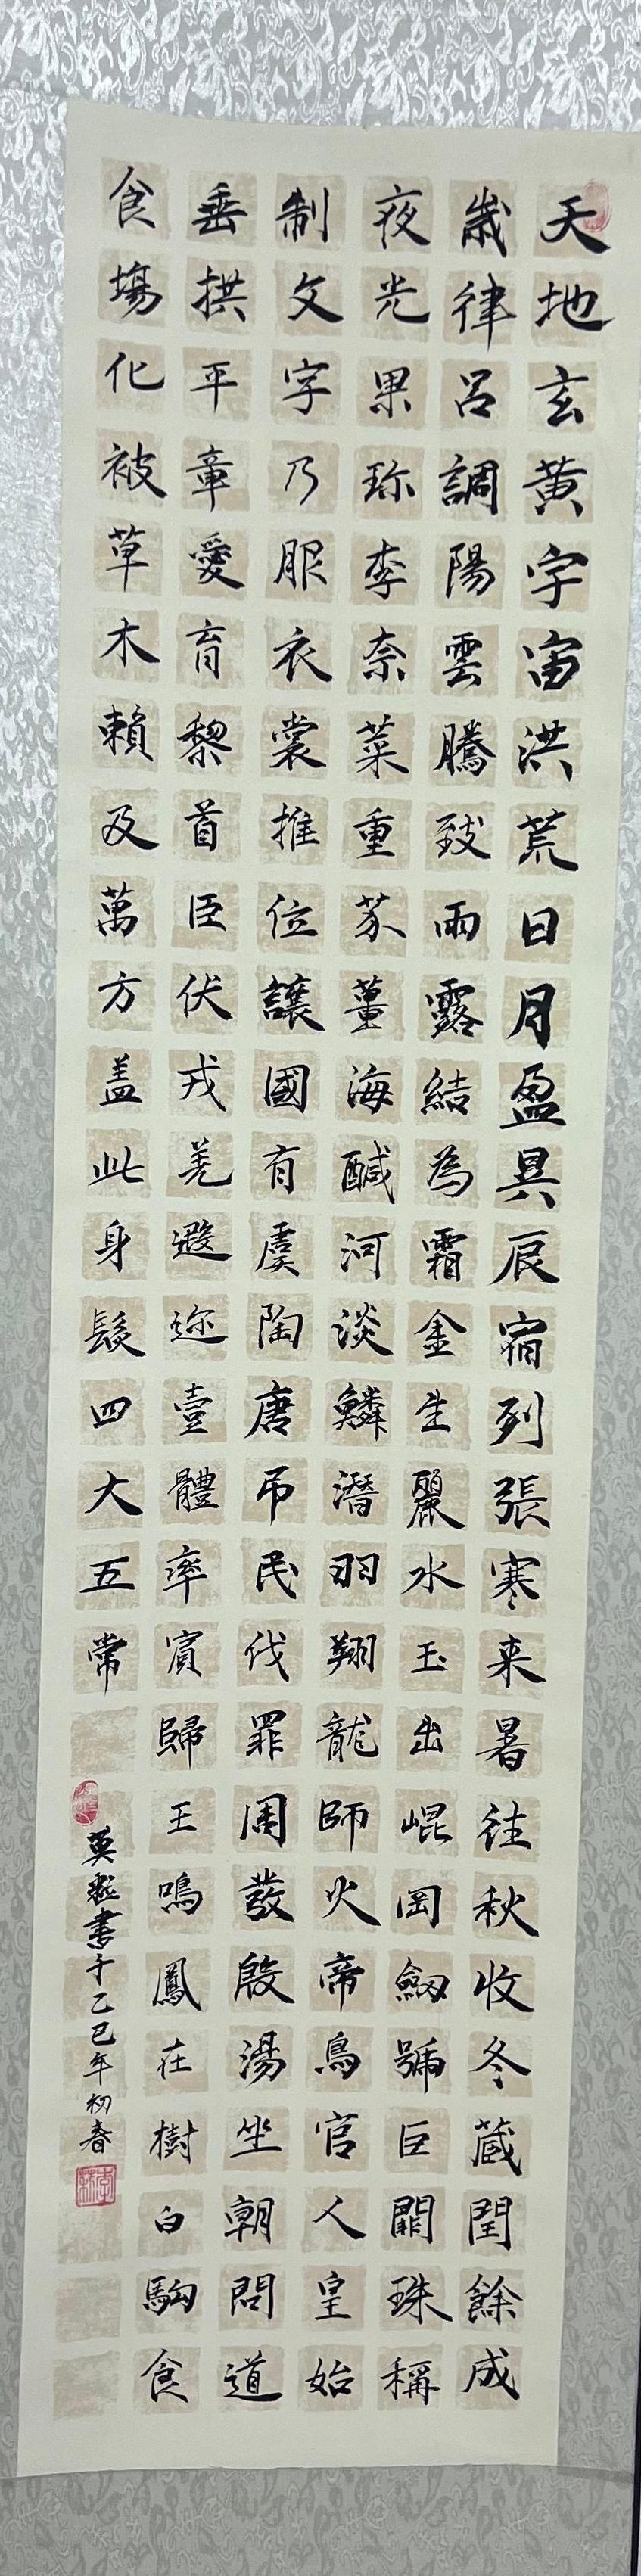 天地玄黃宇宙洪荒日月盈昃辰宿列張寒来暑往秋收冬蔵閏餘成
歲律呂調陽雲騰致雨露結為霜金生麗水玉出崐岡劔號巨闕珠稱
夜光果珎李奈菜重芥薑海醎河淡鱗潛羽翔龍師火帝鳥官人皇始
制文字乃服衣裳推位讓國有虞陶唐吊民伐罪周發殷湯坐朝問道
垂拱平章愛育黎首臣伏戎羌遐迩壹體率賓歸王鳴鳳在樹白駒食
食場化被草木賴及萬方盖此身髮四大五常
書于乙巳年初春